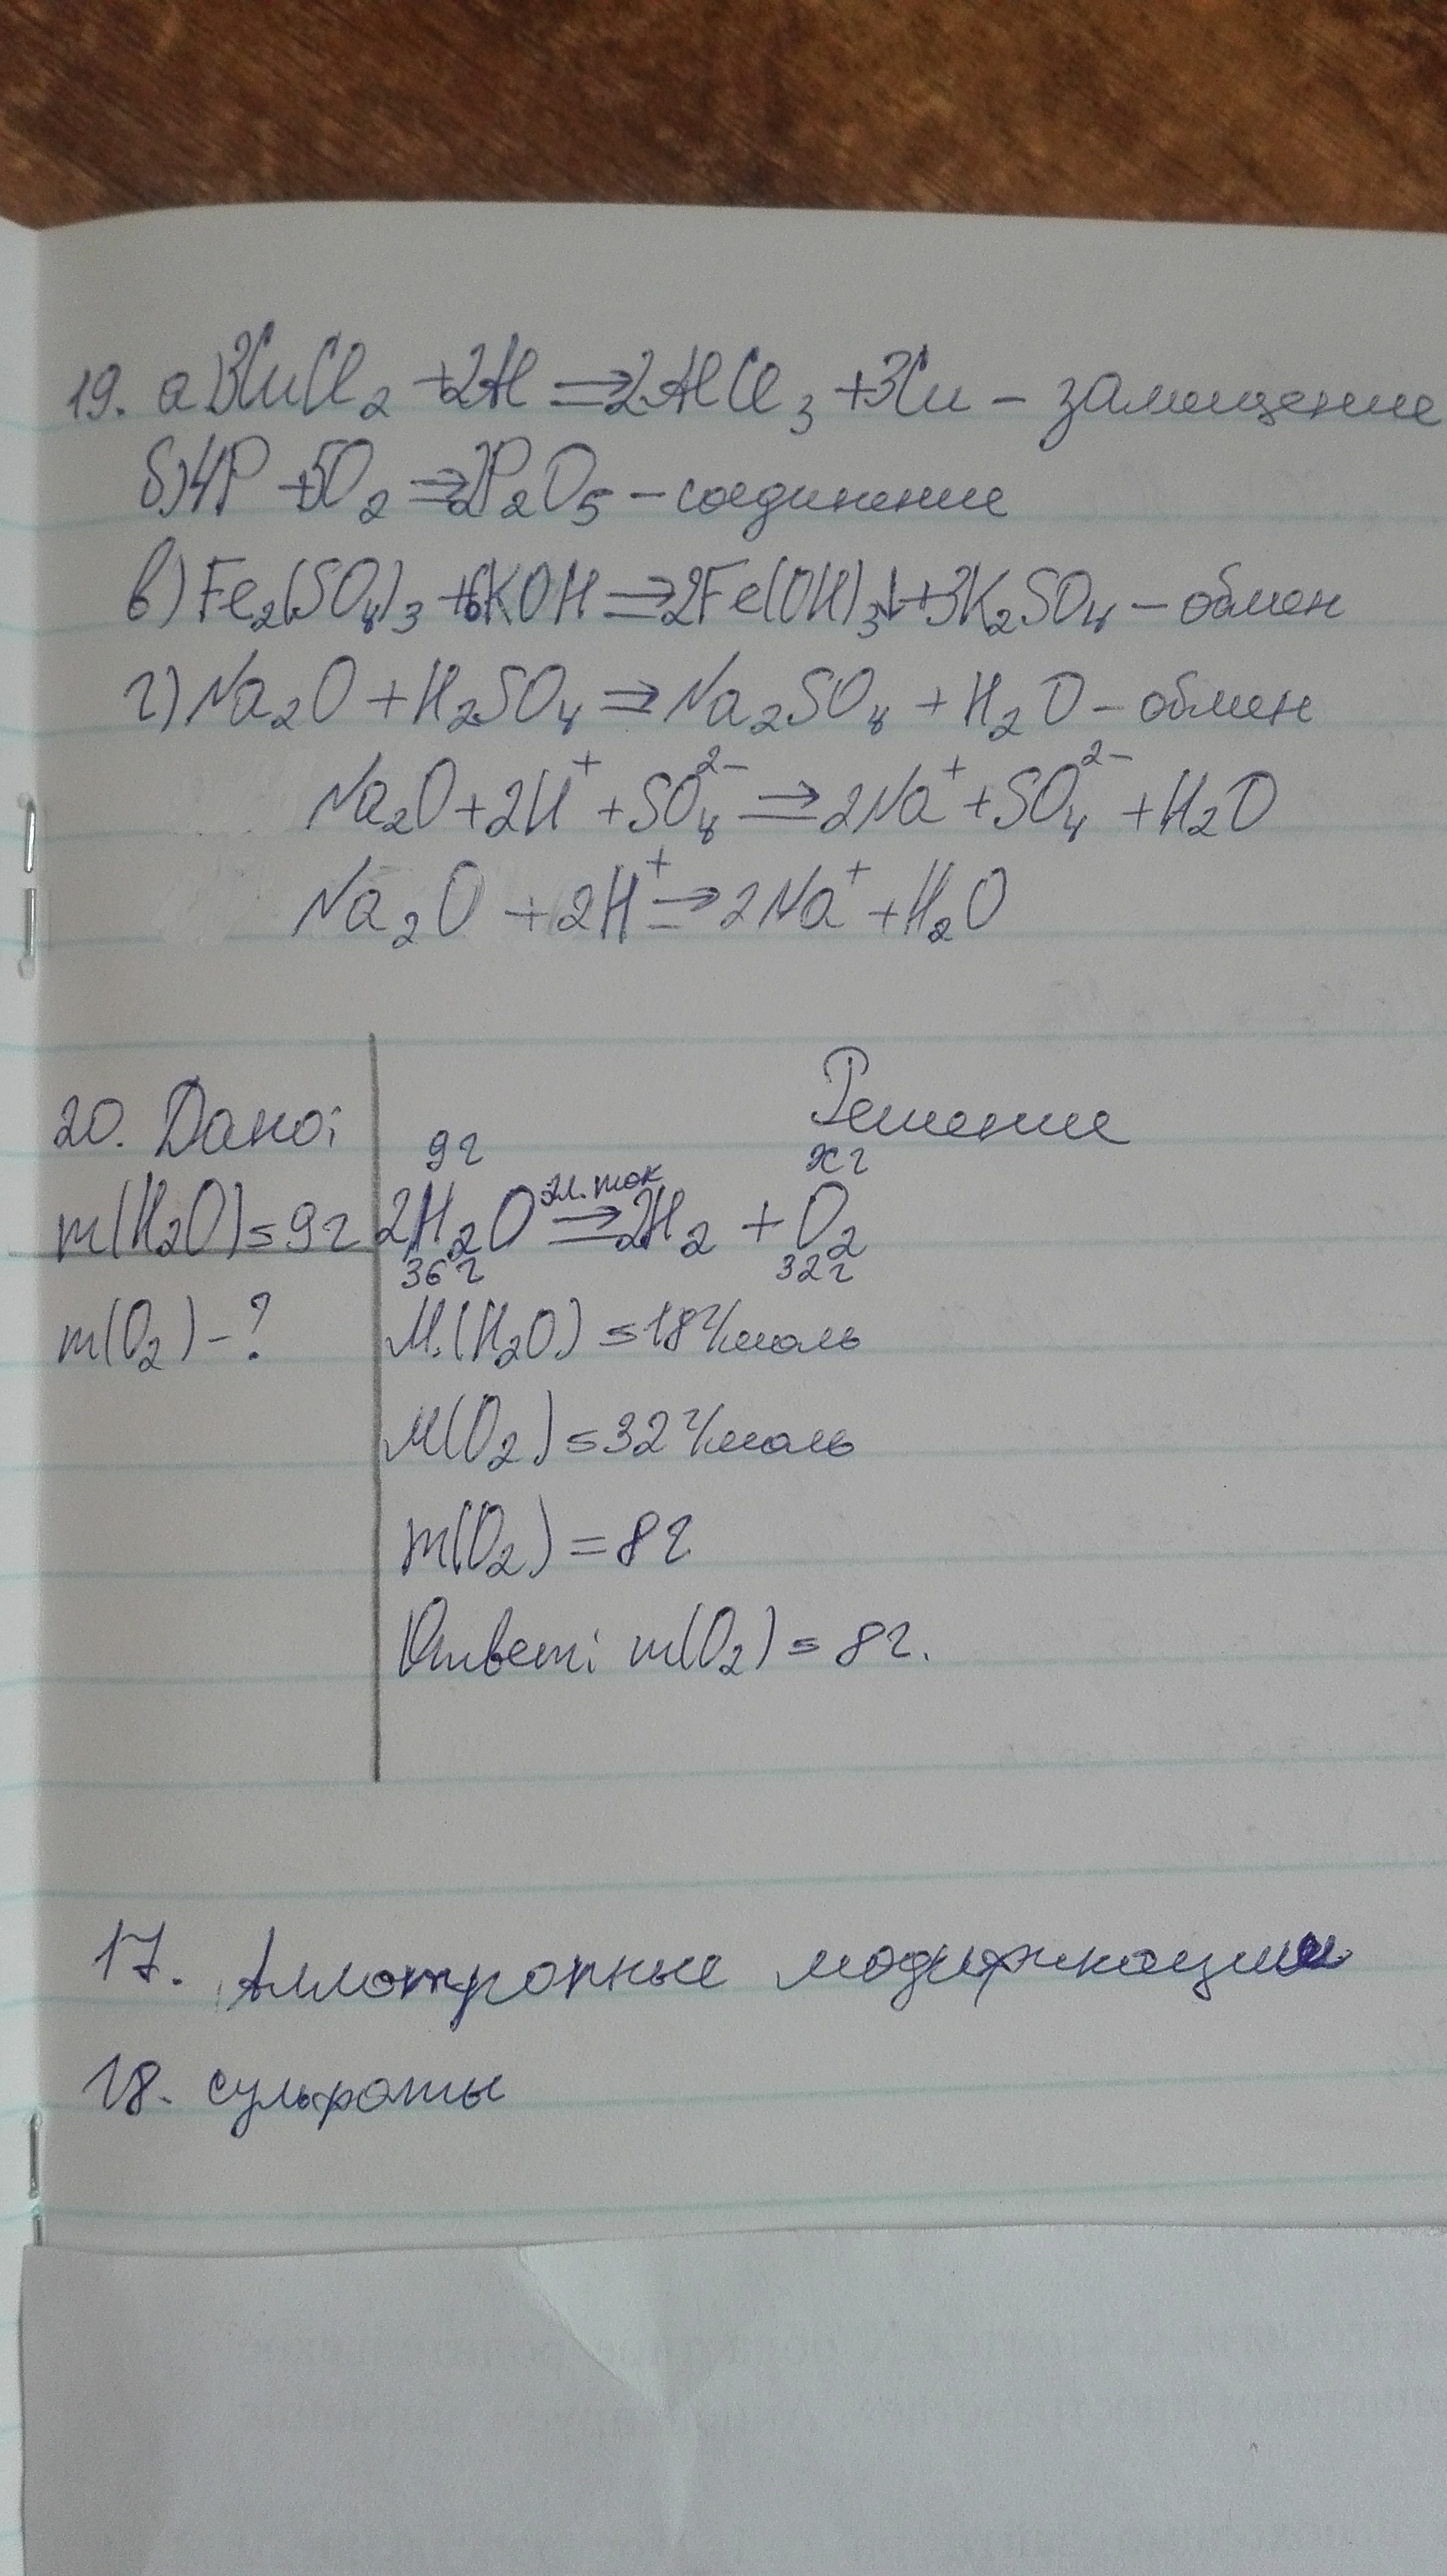 19. а) 3CuCl₂ + 2Al ⇒ 2AlCl₃ + 3Cu – замещение
б) 4P + 5O₂ ⇒ 2P₂O₅ – соединение
в) Fe₂(SO₄)₃ + 6KOH ⇒ 2Fe(OH)₃↓ + 3K₂SO₄ – обмен
г) Na₂O + H₂SO₄ ⇒ Na₂SO₄ + H₂O – обмен
Na₂O + 2H⁺ + SO₄²⁻ ⇒ 2Na⁺ + SO₄²⁻ + H₂O
Na₂O + 2H⁺ ⇒ 2Na⁺ + H₂O
20. Дано:
m(H₂O) = 9г
m(O₂) – ?
Решение
9г xг
2H₂O эл. ток ⇒ 2H₂ + O₂
36г 32г
M(H₂O) = 18 г/моль
M(O₂) = 32 г/моль
m(O₂) = 8г
Ответ: m(O₂) = 8г.
17. Аллотропные модификации
18. сульфаты